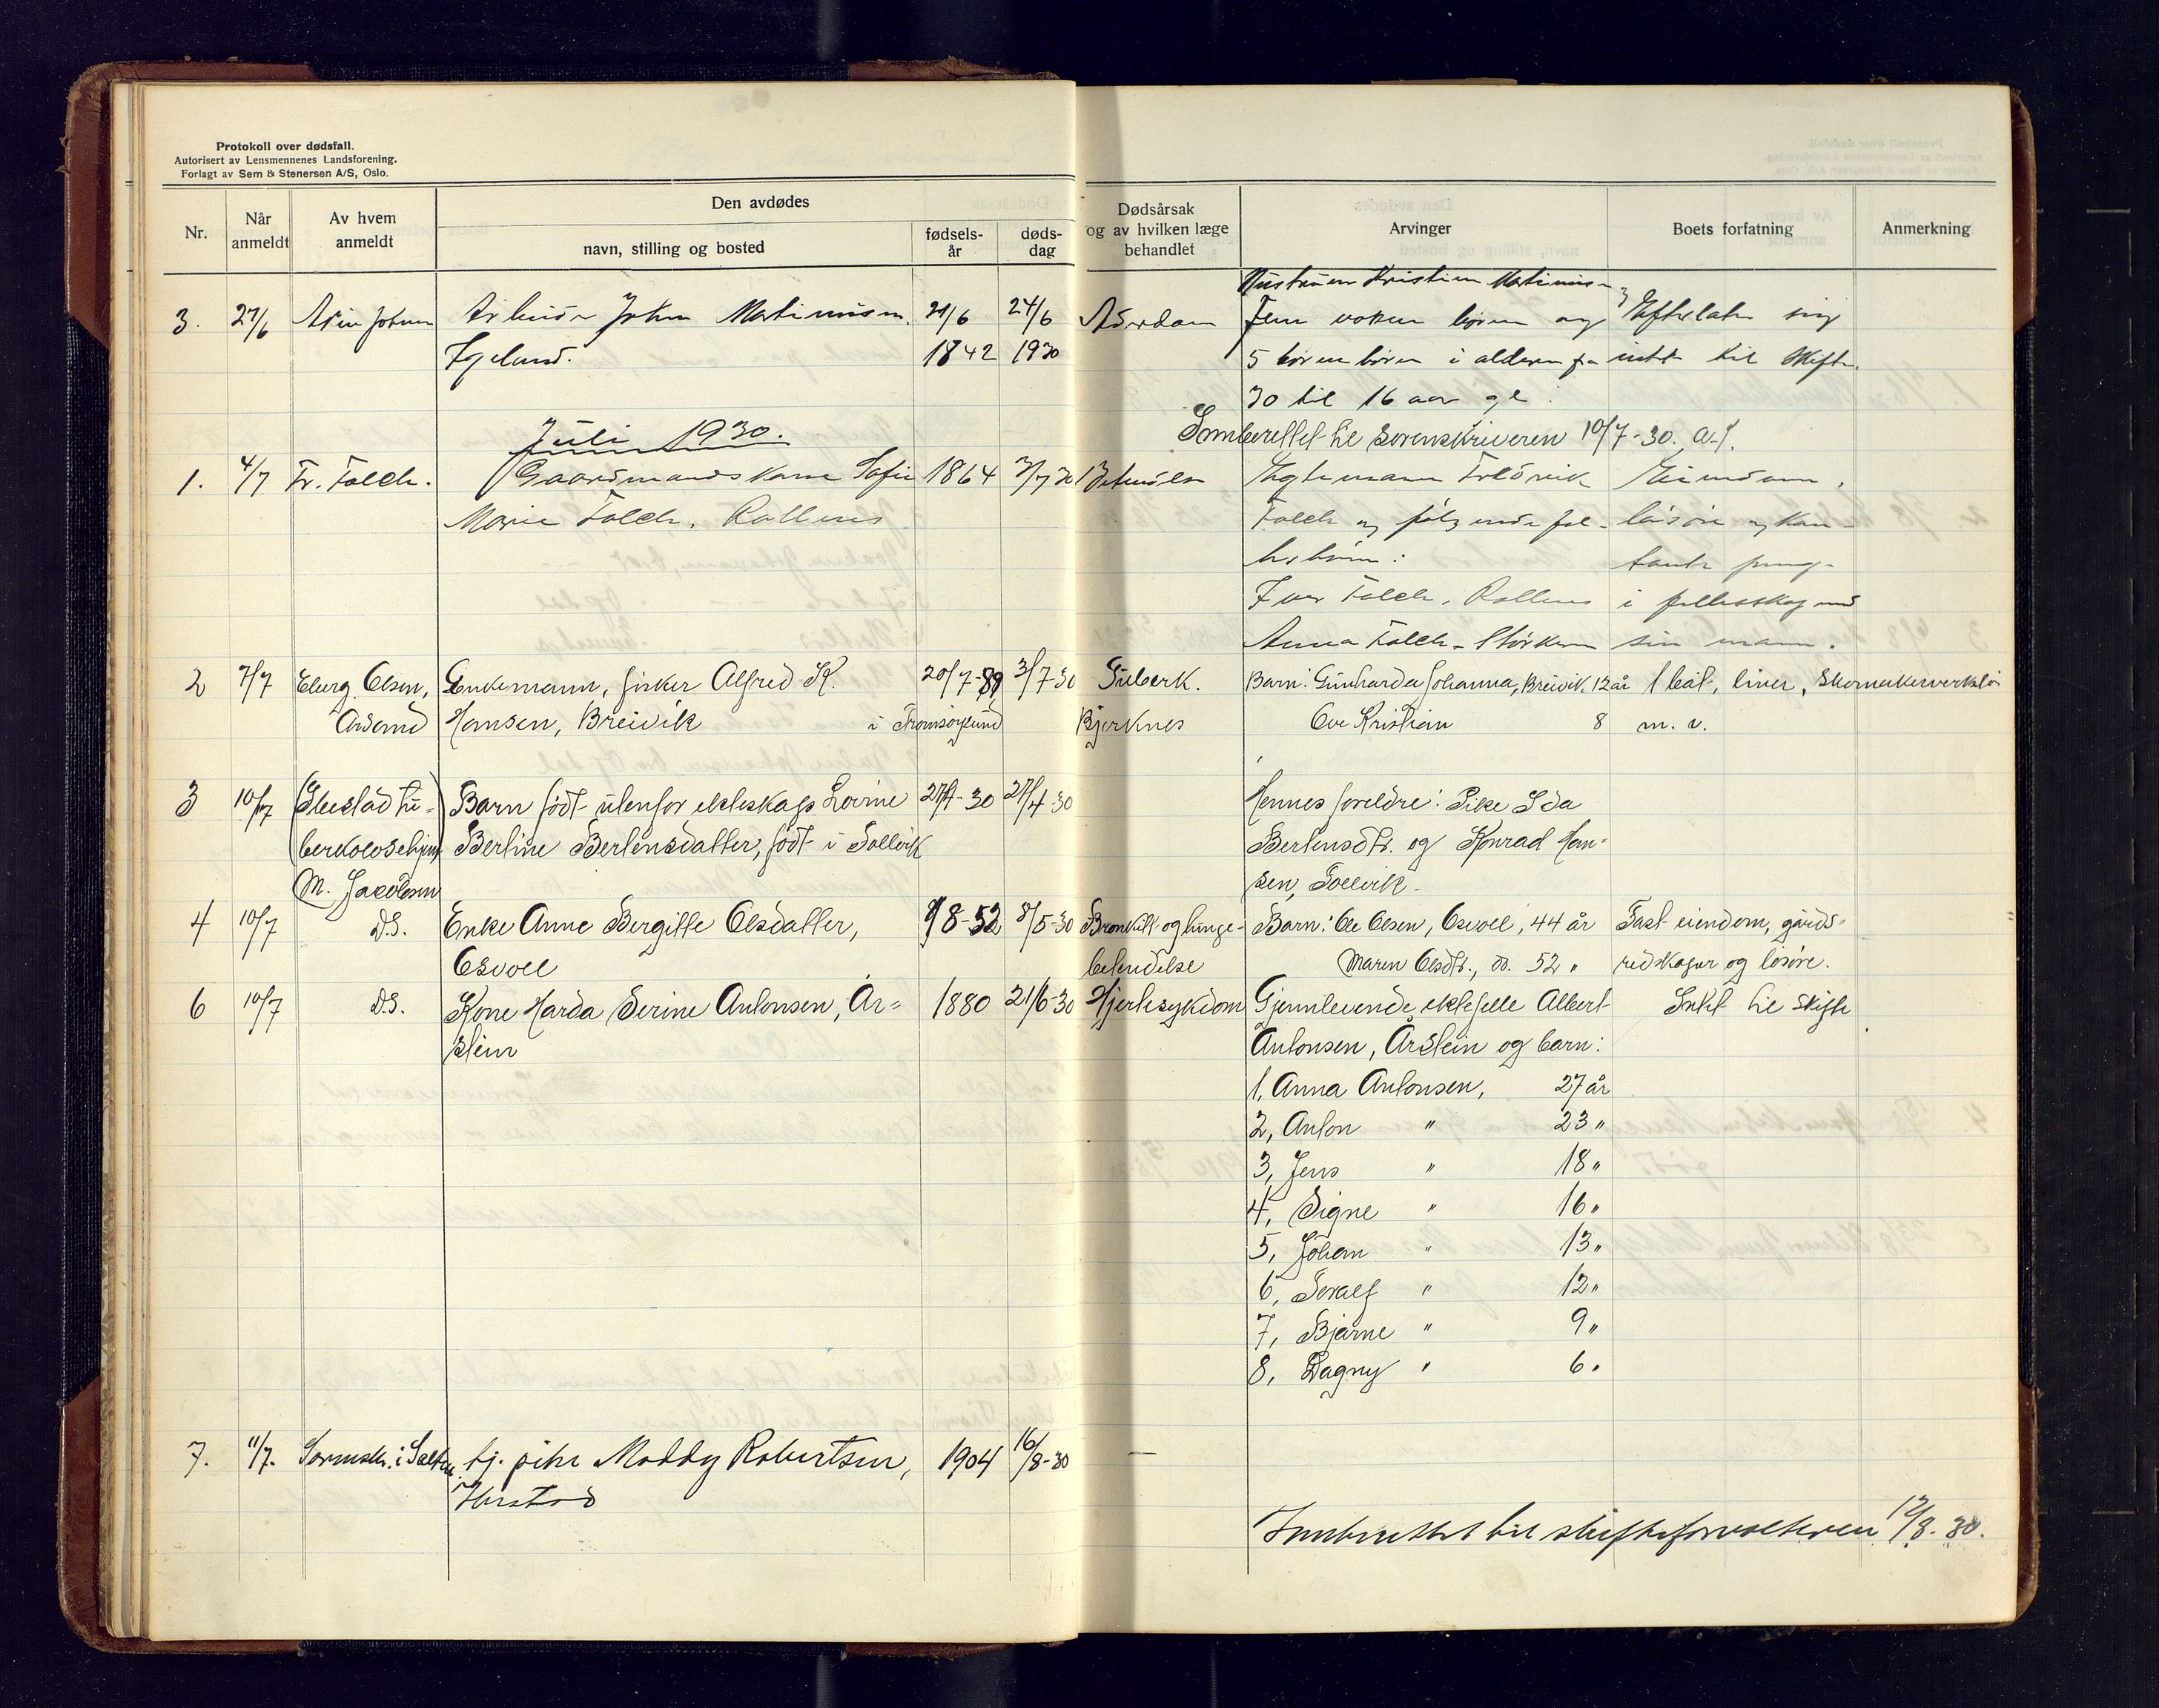 Protokoll over dødsfall.
Autorisert av Lensmennenes Landsforening.
Forlagt av Sem & Stenersen A/S, Oslo.
Nr.
Når anmeldt
Av hvem anmeldt
Den avdødes
navn, stilling og bosted
fødsels-år
døds-dag
Dødsårsak og av hvilken læge behandlet
Arvinger
Boets forfatning
Anmerkning
3. 27/6 John Martinussen 21/6 24/6 Hustruen Kristine Martinussen
Igeland. 1842 1930
Fem voksne børn og Efterlater sig
5 børnebørn i alderen fra intet til Skifte.
30 til 16 aar gl.
Innberettet til sorenskriveren 10/7-30. A.J.
Juli 1930.
1. 4/7 Fr. Falch. Gaardmandskone Sofie 1864 3/7 30 Egtemann Fredrik Eiendom,
Marie Falch. Rollnes Falch og følgende fel- løsøre og kon-
les børn: tante peng-
Ivar Falch, Rollnes i fellesskap med
Anna Falch - Storken sin mann.
2 7/7 Elurg. Olsen, Enkemann, fisker Alfred K. 20/7-89 3/7-30 Tuberk. Barn: Gunharda Johanna, Breivik 12 år 1 båt, liner, Skomakerverktøi
Hansen, Breivik i Tromsøysund Bjerknes Ove Kristian 8 m. v.
3 10/7 (Ibestad tu- Barn født utenfor ekteskap Lovine 27/4-30 27/4-30 Hennes foreldre: Pike Ida
berkolosehjem Berline Bertensdatter, født i Sollvik Bertensdtr. og Konrad Han-
M. Jacobsen sen, Sollvik.
4 10/7 D.S. Enke Anne Bergitte Olsdatter, 9/8-52 8/5-30 Bronkitt og lunge- Barn: Ole Olsen, Osvoll, 44 år Fast eiendom, gårds-
Osvoll betendelse Maren Olsdtr., ds. 52 " redskaper og løsøre.
6 10/7 D.S. Kone Harda Serine Antonsen, År= 1880 21/6-30 Hjertesykdom Gjenlevende ektefelle Albert Intet til skifte
stein Antonsen, Årstein og barn:
1, Anna Antonsen, 27 år
2, Anton " 23 "
3, Jens " 18 "
4, Signe " 16 "
5, Johan " 13 "
6, Toralf " 12 "
7, Bjarne " 9 "
8, Dagny " 6 "
7. 11/7. Sorenskr. i Salten tj. pike Moddy Robertsen, 1904 16/8-30 —
Harstad
Innberettet til skifteforvalteren 12/8. 30.